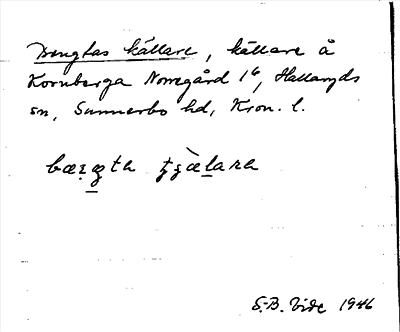 Bengtas källare, källare å
Kornberga Norregård 1⁶, Hallaryds
sn, Sunnerbo hd, Kron. l.
S.-B. Vide 1946